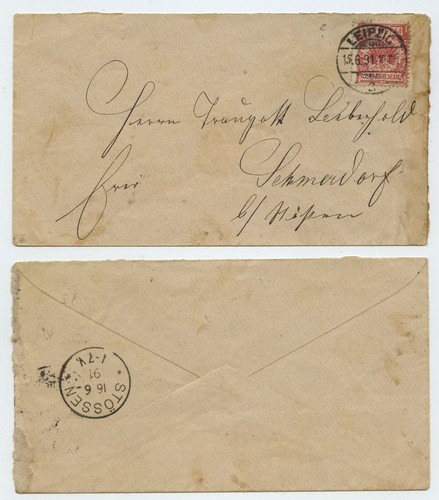 LEIPZIG
15.6.91.
Herrn Traugott Leiberhold
Frei
Schmerdorf
b/ Stößen
STÖSSEN
16 6
91
7-8V